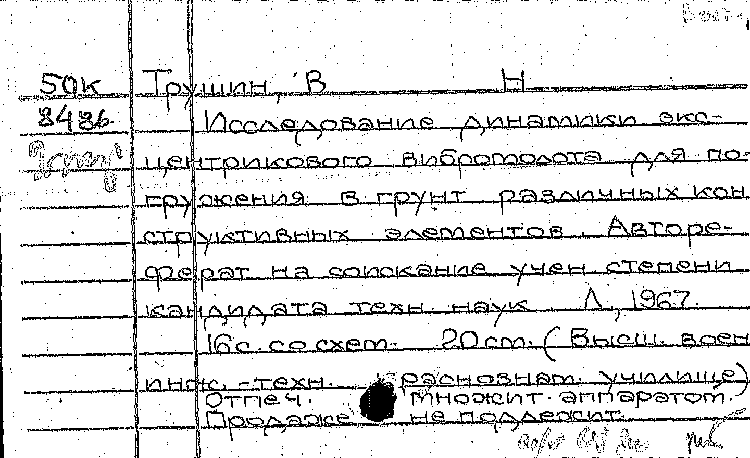 50К Трушин, В Н
3436 Исследование динамики экс-
центрикового вибромолота для по-
гружения в грунт различных кон
структивных элементов. Авторе-
ферат на соискание учен степени
кандидата техн. наук Л, 1967.
16с. со схем. 20см. (Высш. воен
инж.-техн. краснознам. училище)
Отпеч. множит. аппаратом.
Продаже не подлежит.